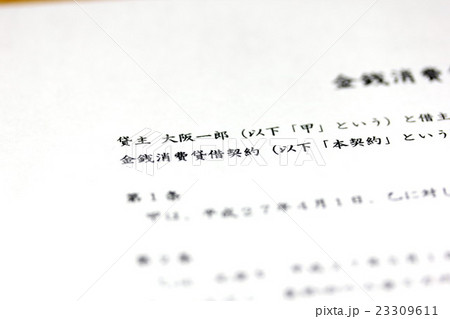 金銭消費
貸主 大阪一郎（以下「甲」という）と借主
金銭消費貸借契約（以下「本契約」という
第1条
甲は、平成27年4月1日、乙に対し
pixta.jp - 23309611